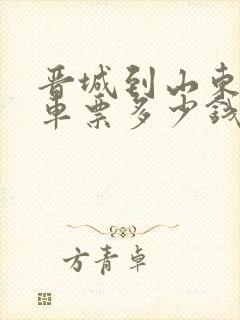 晋城到山东
车票多少钱
方青卓